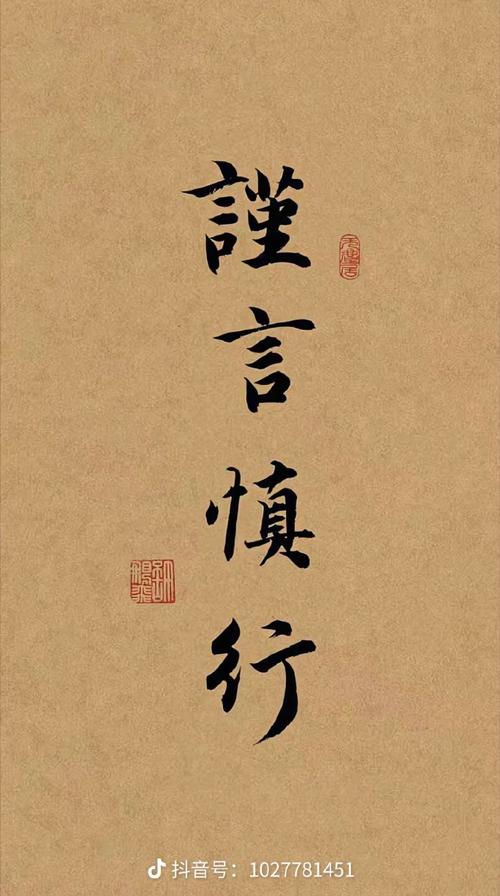 謹言慎行
抖音号：1027781451